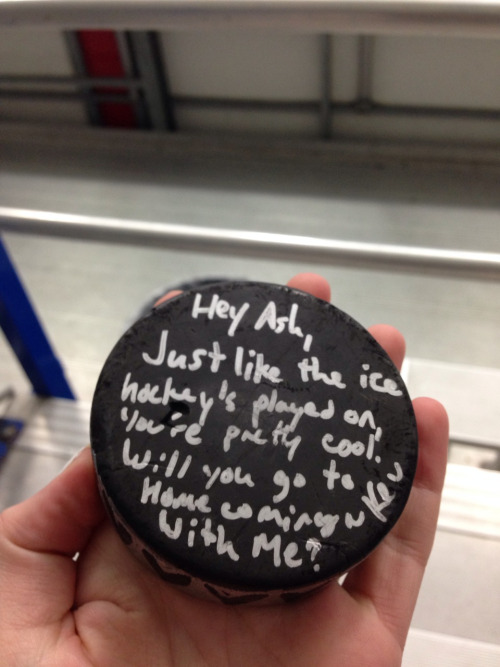 Hey Ash,
Just like the ice
hockey's played on,
You're pretty cool!
Will you go to
Homecoming
With Me?